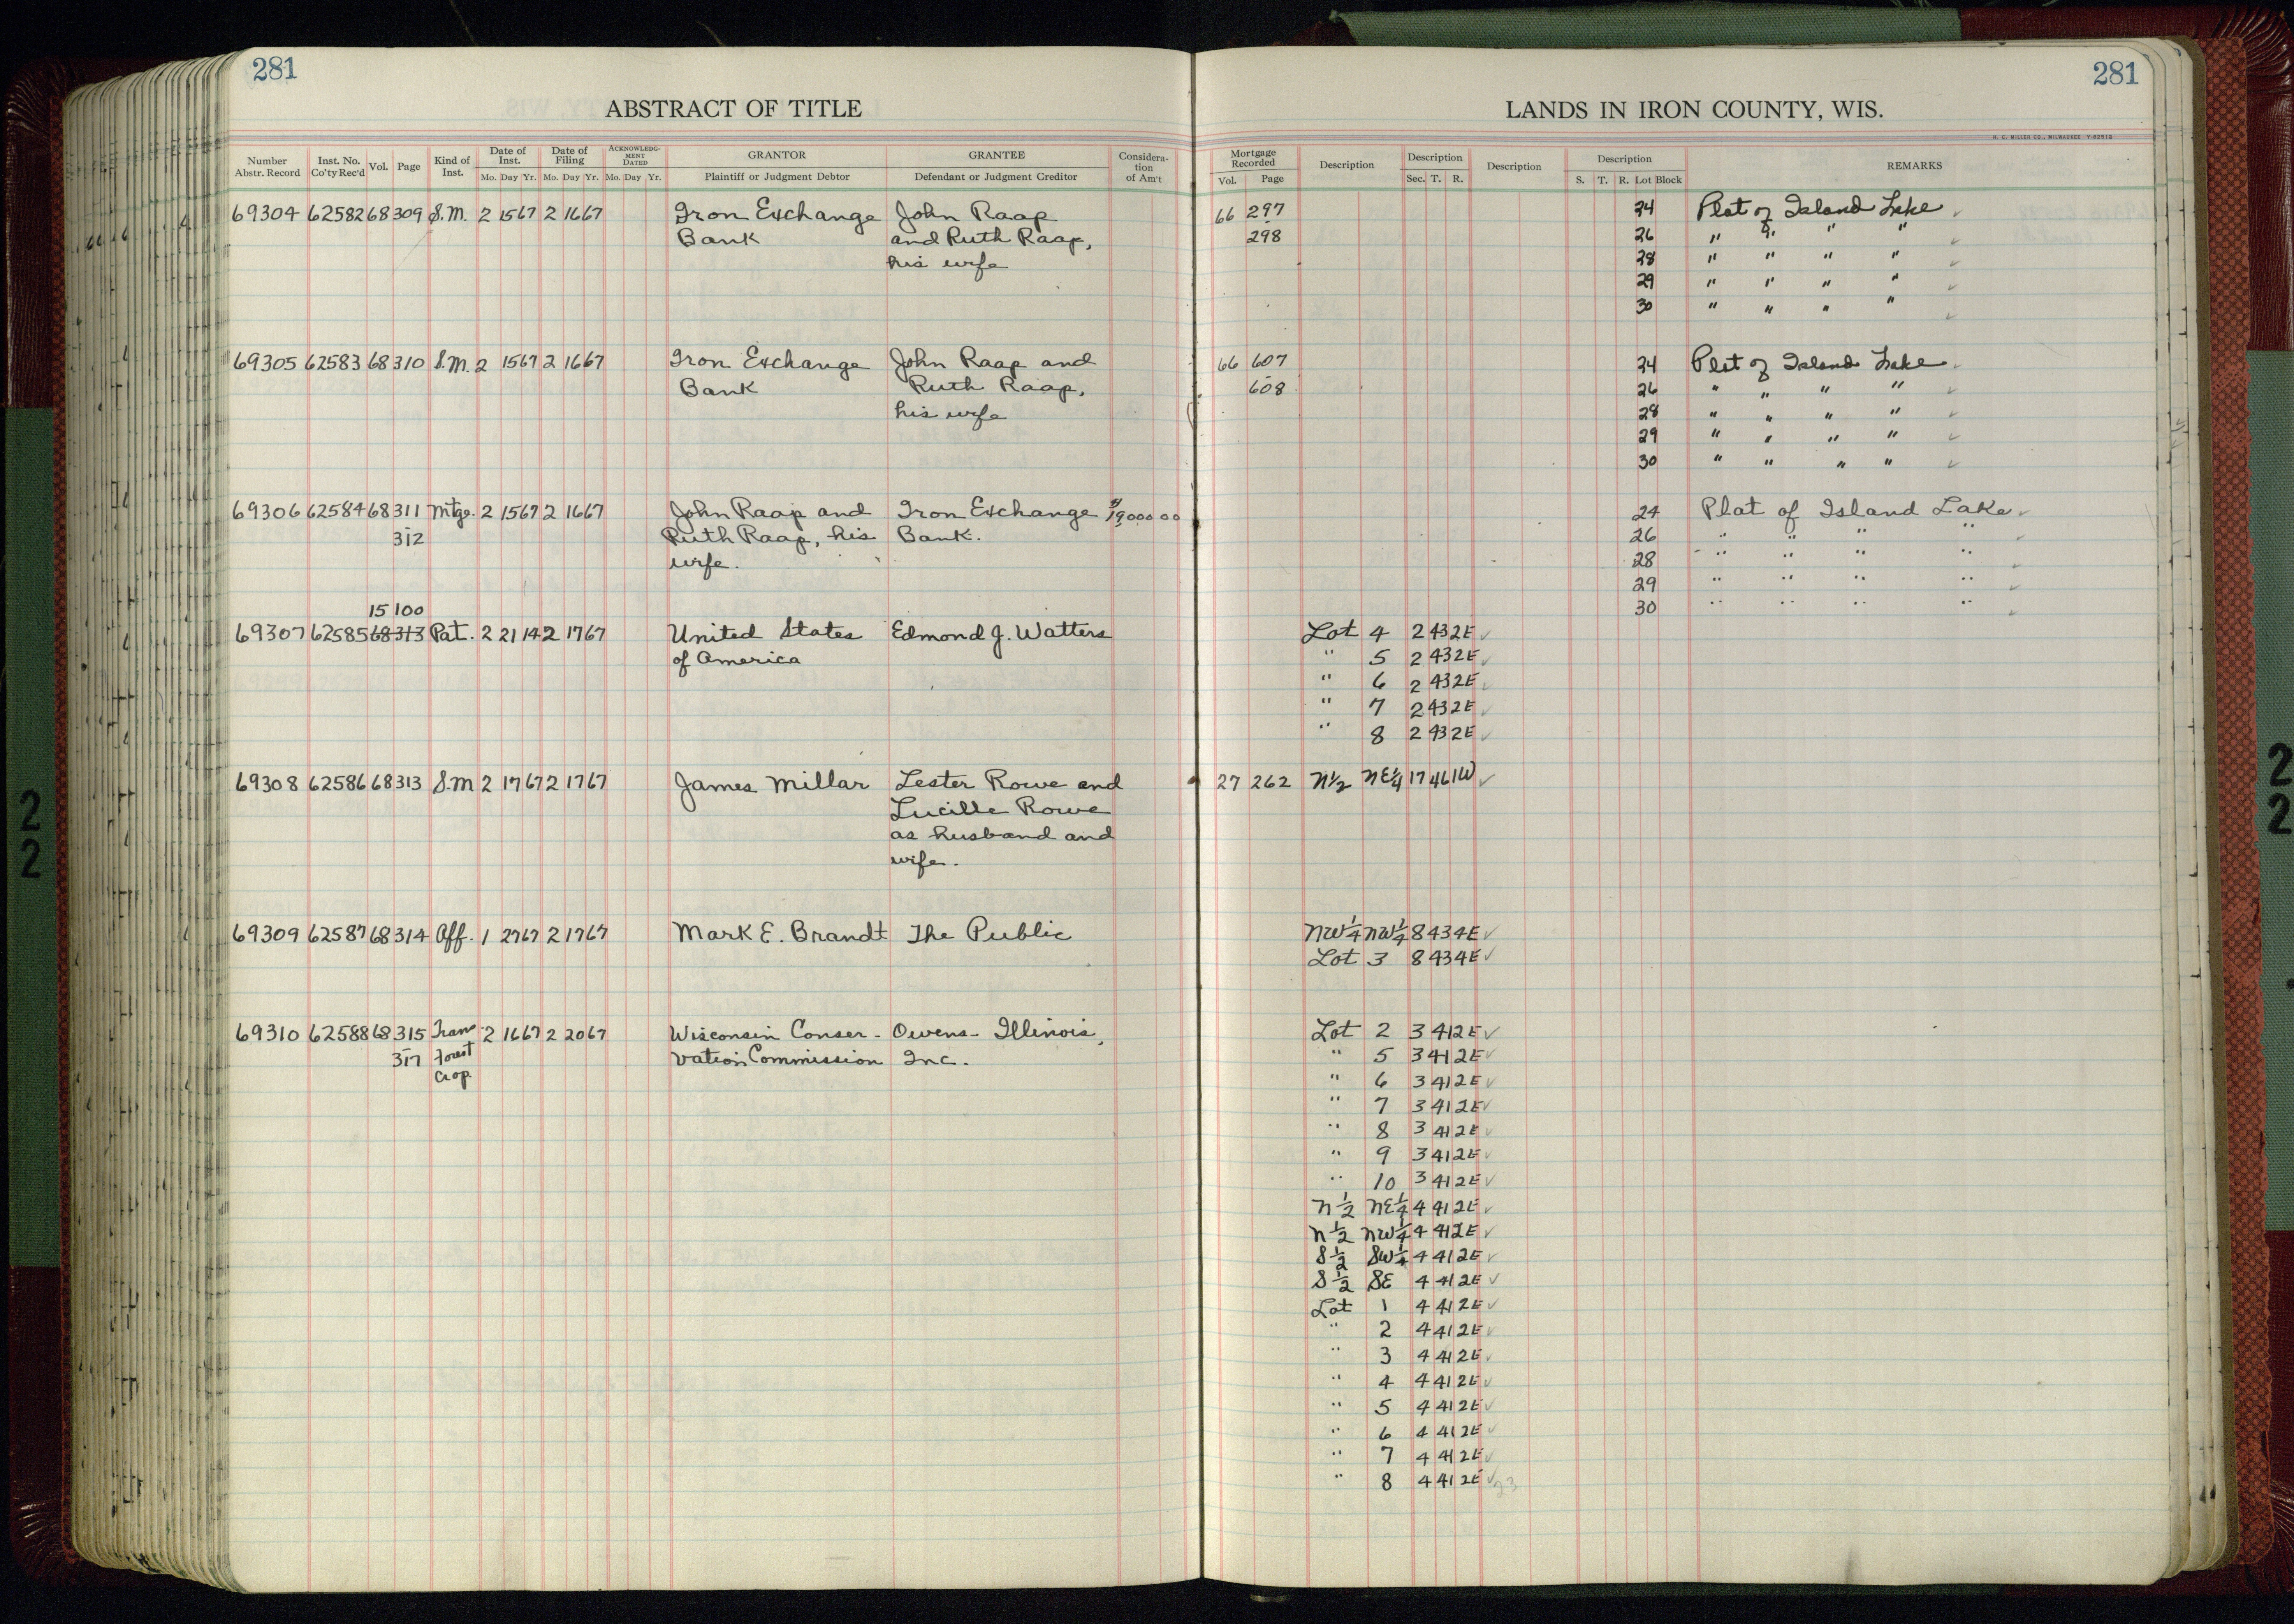 281
281
ABSTRACT OF TITLE
LANDS IN IRON COUNTY, WIS.
H. C. MILLER CO., MILWAUKEE
Number Abstr. Record Inst. No. Co'ty Rec'd Vol. Page Kind of Inst. Date of Inst. Mo. Day Yr. Date of Filing Mo. Day Yr. ACKNOWLEDGMENT DATED Mo. Day Yr. GRANTOR Plaintiff or Judgment Debtor GRANTEE Defendant or Judgment Creditor Consideration of Am't
Mortgage Recorded Vol. Page Description Description Sec. T. R. Description Description S. T. R. Lot Block REMARKS
69304 62582 68 309 S.M. 2 15 67 2 16 67 Iron Exchange John Raap 66 297 24 Plat of Island Lake ✓
Bank and Ruth Raap, 298 26 " " " " ✓
his wife 28 " " " " ✓
29 " " " " ✓
30 " " " " ✓
69305 62583 68 310 S.M. 2 15 67 2 16 67 Iron Exchange John Raap and 66 607 24 Plat of Island Lake ✓
Bank Ruth Raap, 608 26 " " " " ✓
his wife 28 " " " " ✓
29 " " " " ✓
30 " " " " ✓
69306 62584 68 311 Mtge. 2 15 67 2 16 67 John Raap and Iron Exchange $19,000 00 24 Plat of Island Lake ✓
312 Ruth Raap, his Bank. 26 " " " " ✓
wife. 28 " " " " ✓
29 " " " " ✓
30 " " " " ✓
15 100
69307 62585 68 313 Pat. 2 21 14 2 17 67 United States Edmond J. Watters Lot 4 2 43 2E ✓
of America " 5 2 43 2E ✓
" 6 2 43 2E ✓
" 7 2 43 2E ✓
" 8 2 43 2E ✓
69308 62586 68 313 S.M 2 17 67 2 17 67 James Millar Lester Rowe and 27 262 N½ NE¼ 17 46 1W ✓
Lucille Rowe
as husband and
wife.
69309 62587 68 314 Aff. 1 27 67 2 17 67 Mark E. Brandt The Public NW¼ NW¼ 8 43 4E ✓
Lot 3 8 43 4E ✓
69310 62588 68 315 Trans 2 16 67 2 20 67 Wisconsin Conser- Owens-Illinois, Lot 2 3 41 2E ✓
317 Forest vation Commission Inc. " 5 3 41 2E ✓
Crop " 6 3 41 2E ✓
" 7 3 41 2E ✓
" 8 3 41 2E ✓
" 9 3 41 2E ✓
" 10 3 41 2E ✓
N½ NE¼ 4 41 2E ✓
N½ NW¼ 4 41 2E ✓
S½ SW¼ 4 41 2E ✓
S½ SE 4 41 2E ✓
Lot 1 4 41 2E ✓
" 2 4 41 2E ✓
" 3 4 41 2E ✓
" 4 4 41 2E ✓
" 5 4 41 2E ✓
" 6 4 41 2E ✓
" 7 4 41 2E ✓
" 8 4 41 2E ✓ 23
22
22